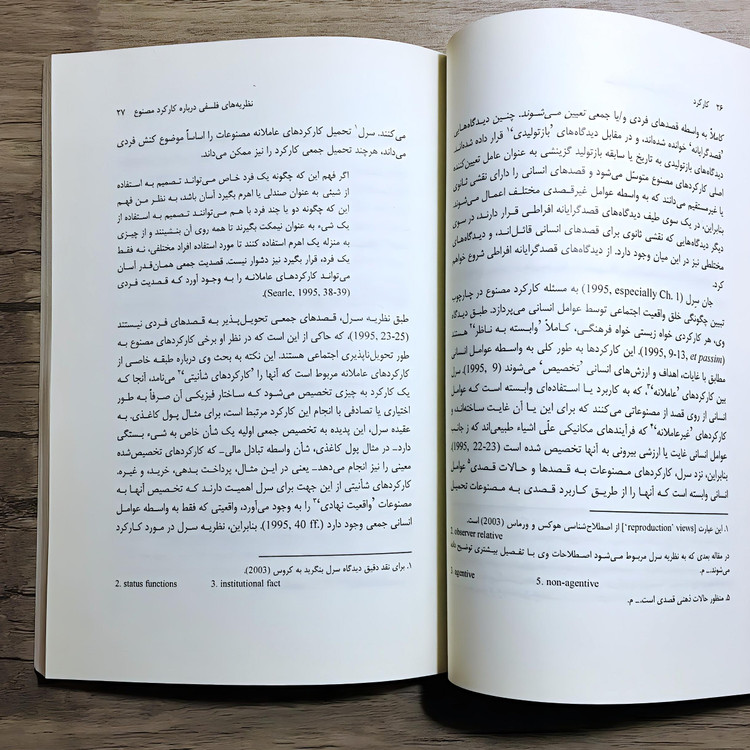 ۲۶ کارکرد
کاملاً به واسطه قصدهای فردی و/یا جمعی تعیین می‌شوند. چنین دیدگاه‌هایی
'قصدگرایانه' خوانده شده‌اند، و در مقابل دیدگاه‌های 'بازتولیدی'۱ قرار داده شده‌اند.
دیدگاه‌های بازتولیدی به تاریخ یا سابقه بازتولید گزینشی به عنوان عامل تعیین‌کننده
اصلی کارکردهای مصنوع متوسل می‌شود و قصدهای انسانی را دارای نقشی ثانوی
یا غیرمستقیم می‌دانند که به واسطه عوامل غیرقصدی مختلف اعمال می‌شوند.
بنابراین، در یک سوی طیف دیدگاه‌های قصدگرایانه افراطی قرار دارند، در سوی
دیگر دیدگاه‌هایی که نقشی ثانوی برای قصدهای انسانی قائل‌اند، و دیدگاه‌های
مختلطی نیز در این میان وجود دارد. از دیدگاه‌های قصدگرایانه افراطی شروع خواهم
کرد.
جان سرل (1995, especially Ch. 1) به مسئله کارکرد مصنوع در چارچوب
تبیین چگونگی خلق واقعیت اجتماعی توسط عوامل انسانی می‌پردازد. طبق دیدگاه
وی، هر کارکردی خواه زیستی خواه فرهنگی، کاملاً 'وابسته به ناظر'۲ هستند
(1995, 9-13, et passim). این کارکردها به طور کلی به واسطه عوامل انسانی
مطابق با غایات، اهداف و ارزش‌های انسانی 'تخصیص' می‌شوند (1995, 9). سرل
بین کارکردهای 'عاملانه'۳، که به کاربرد یا استفاده‌ای وابسته است که عوامل
انسانی از روی قصد از مصنوعاتی می‌کنند که برای این یا آن غایت ساخته‌اند، و
کارکردهای 'غیرعاملانه'۴ که فرآیندهای مکانیکی علّی اشیاء طبیعی‌اند که ز جانب
عوامل انسانی غایت یا ارزشی بیرونی به آنها تخصیص شده است (1995, 22-23)
بنابراین، نزد سرل، کارکردهای مصنوعات به قصدها و حالات قصدی۵ عوامل
انسانی وابسته است که آنها را از طریق کاربرد قصدی به مصنوعات تحمیل
۱. این عبارت ['reproduction' views] از اصطلاح‌شناسی هوکس و ورماس (2003) است.
2. observer relative
در مقاله بعدی که به نظریه سرل مربوط می‌شود اصطلاحات وی با تفصیل بیشتری توضیح داده
می‌شوند.ـ م.
3. agentive 5. non-agentive
۵. منظور حالات ذهنی قصدی است.ـ م.
نظریه‌های فلسفی درباره کارکرد مصنوع ۲۷
می‌کنند. سرل۱ تحمیل کارکردهای عاملانه مصنوعات را اساساً موضوع کنش فردی
می‌داند، هرچند تحمیل جمعی کارکرد را نیز ممکن می‌داند.
اگر فهم این که چگونه یک فرد خاص می‌تواند تصمیم به استفاده
از شیئی به عنوان صندلی یا اهرم بگیرد آسان باشد، به نظر من فهم
این که چگونه دو یا چند فرد با هم می‌توانند تصمیم به استفاده از
یک شیء به عنوان نیمکت بگیرند تا همه روی آن بنشینند و از چیزی
به منزله یک اهرم استفاده کنند تا مورد استفاده افراد مختلفی، نه فقط
یک فرد، قرار بگیرد نیز دشوار نیست. قصدیت جمعی همان‌قدر آسان
می‌تواند کارکردهای عاملانه را به وجود آورد که قصدیت فردی
(Searle, 1995, 38-39).
طبق نظریه سرل، قصدهای جمعی تحویل‌پذیر به قصدهای فردی نیستند
(1995, 23-25)، که حاکی از این است که در نظر او برخی کارکردهای مصنوع به
طور تحویل‌ناپذیری اجتماعی هستند. این نکته به بحث وی درباره طبقه خاصی از
کارکردهای عاملانه مربوط است که آنها را 'کارکردهای شأنیتی'۲ می‌نامد، آنجا که
یک کارکرد به چیزی تخصیص می‌شود که ساختار فیزیکی آن صرفاً به طور
اختیاری یا تصادفی با انجام این کارکرد مرتبط است، برای مثال پول کاغذی. به
عقیده سرل، این پدیده به تخصیص جمعی اولیه یک شأن خاص به شیء بستگی
دارد– در مثال پول کاغذی، شأن واسطه تبادل مالی– که کارکردهای تخصیص‌شده
معینی را نیز انجام می‌دهد– یعنی در این مثال، پرداخت بدهی، خرید، و غیره.
کارکردهای شأنیتی از این جهت برای سرل اهمیت دارند که تخصیص آنها به
مصنوعات 'واقعیت نهادی'۳ را به وجود می‌آورد، واقعیتی که فقط به واسطه عوامل
انسانی جمعی وجود دارد (1995, 40 ff.). بنابراین، نظریه سرل در مورد کارکرد
۱. برای نقد دقیق دیدگاه سرل بنگرید به کروس (2003).
2. status functions 3. institutional fact